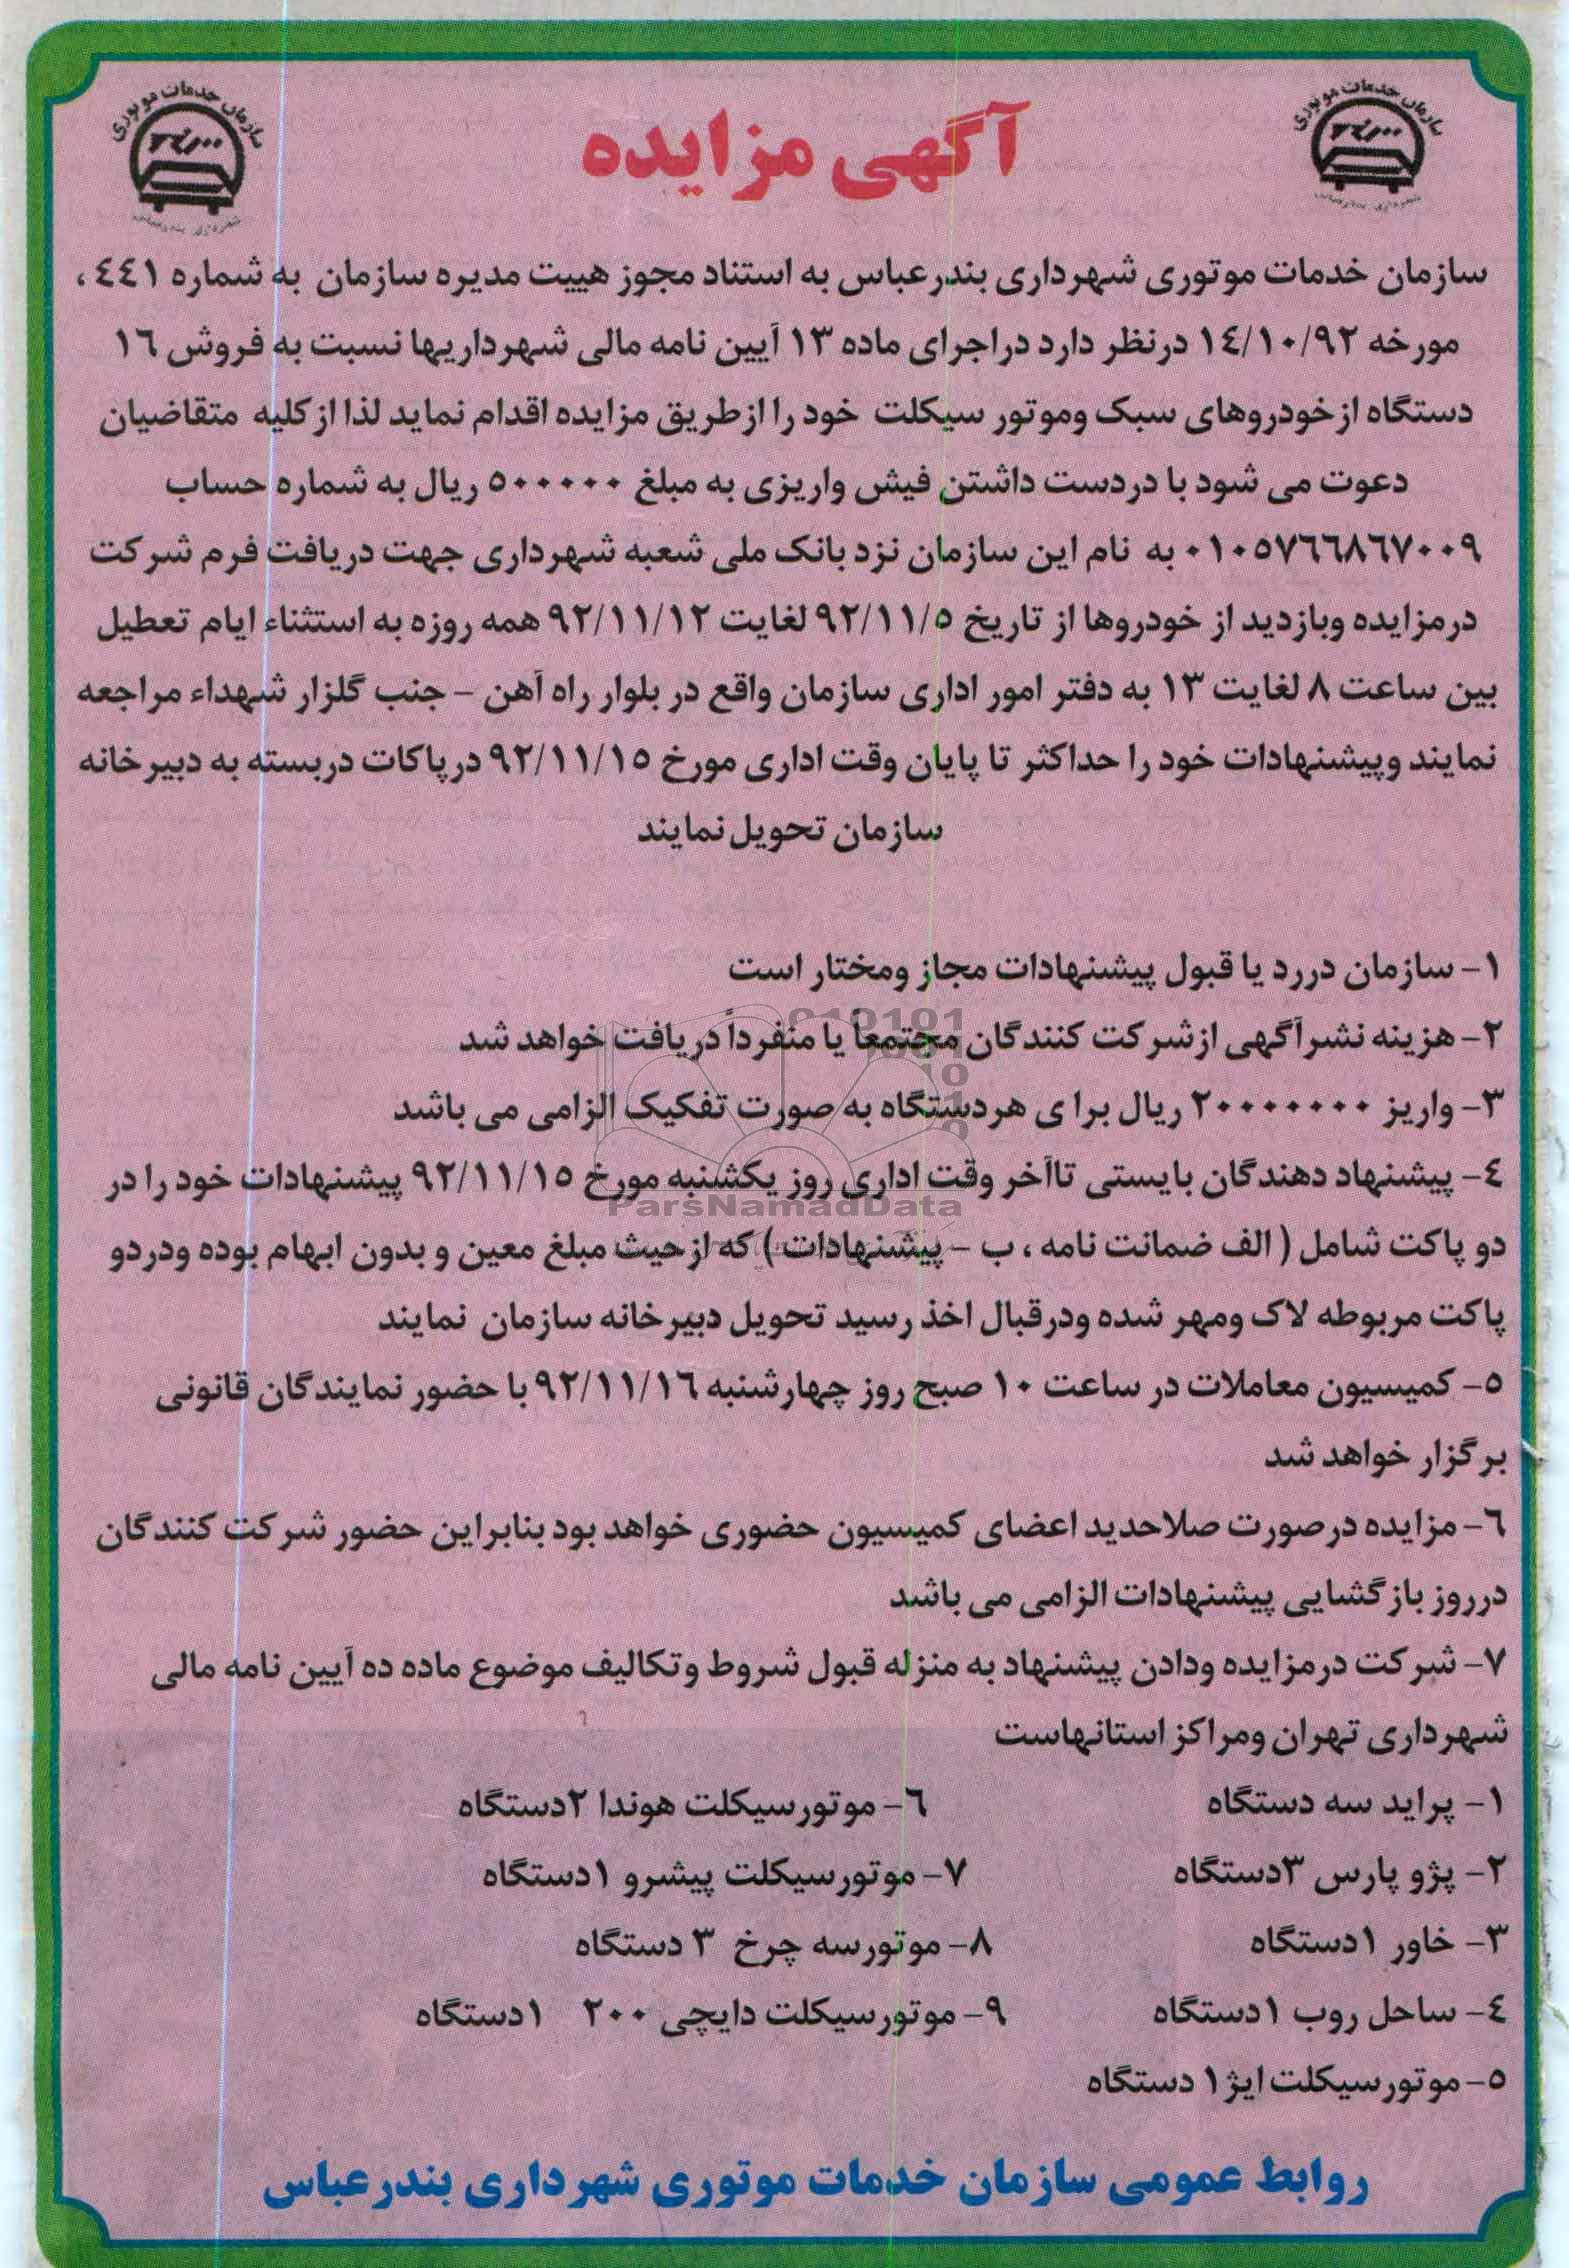 سازمان خدمات موتوری
سازمان خدمات موتوری
آگهی مزایده
سازمان خدمات موتوری شهرداری بندرعباس به استناد مجوز هییت مدیره سازمان به شماره ٤٤١ ،
مورخه ١٤/١٠/٩٢ درنظر دارد دراجرای ماده ١٣ آیین نامه مالی شهرداریها نسبت به فروش ١٦
دستگاه ازخودروهای سبک وموتور سیکلت خود را ازطریق مزایده اقدام نماید لذا ازکلیه متقاضیان
دعوت می شود با دردست داشتن فیش واریزی به مبلغ ٥٠٠٠٠٠ ریال به شماره حساب
٠١٠٥٧٦٦٨٦٧٠٠٩ به نام این سازمان نزد بانک ملی شعبه شهرداری جهت دریافت فرم شرکت
درمزایده وبازدید از خودروها از تاریخ ٩٢/١١/٥ لغایت ٩٢/١١/١٢ همه روزه به استثناء ایام تعطیل
بین ساعت ٨ لغایت ١٣ به دفتر امور اداری سازمان واقع در بلوار راه آهن – جنب گلزار شهداء مراجعه
نمایند وپیشنهادات خود را حداکثر تا پایان وقت اداری مورخ ٩٢/١١/١٥ درپاکات دربسته به دبیرخانه
سازمان تحویل نمایند
١- سازمان دررد یا قبول پیشنهادات مجاز ومختار است
٢- هزینه نشرآگهی ازشرکت کنندگان مجتمعاً یا منفرداً دریافت خواهد شد
٣- واریز ٢٠٠٠٠٠٠٠ ریال برای هردستگاه به صورت تفکیک الزامی می باشد
٤- پیشنهاد دهندگان بایستی تاآخر وقت اداری روز یکشنبه مورخ ٩٢/١١/١٥ پیشنهادات خود را در
ParsNamadData
دو پاکت شامل ( الف ضمانت نامه ، ب – پیشنهادات ) که ازحیث مبلغ معین و بدون ابهام بوده ودردو
پاکت مربوطه لاک ومهر شده ودرقبال اخذ رسید تحویل دبیرخانه سازمان نمایند
٥- کمیسیون معاملات در ساعت ١٠ صبح روز چهارشنبه ٩٢/١١/١٦ با حضور نمایندگان قانونی
برگزار خواهد شد
٦- مزایده درصورت صلاحدید اعضای کمیسیون حضوری خواهد بود بنابراین حضور شرکت کنندگان
درروز بازگشایی پیشنهادات الزامی می باشد
٧- شرکت درمزایده ودادن پیشنهاد به منزله قبول شروط وتکالیف موضوع ماده ده آیین نامه مالی
شهرداری تهران ومراکز استانهاست
١- پراید سه دستگاه
٢- پژو پارس ٣دستگاه
٣- خاور ١دستگاه
٤- ساحل روب ١دستگاه
٥- موتورسیکلت ایژ١ دستگاه
٦- موتورسیکلت هوندا ٢دستگاه
٧- موتورسیکلت پیشرو ١دستگاه
٨- موتورسه چرخ ٣ دستگاه
٩- موتورسیکلت دایچی ٢٠٠ ١دستگاه
روابط عمومی سازمان خدمات موتوری شهرداری بندرعباس